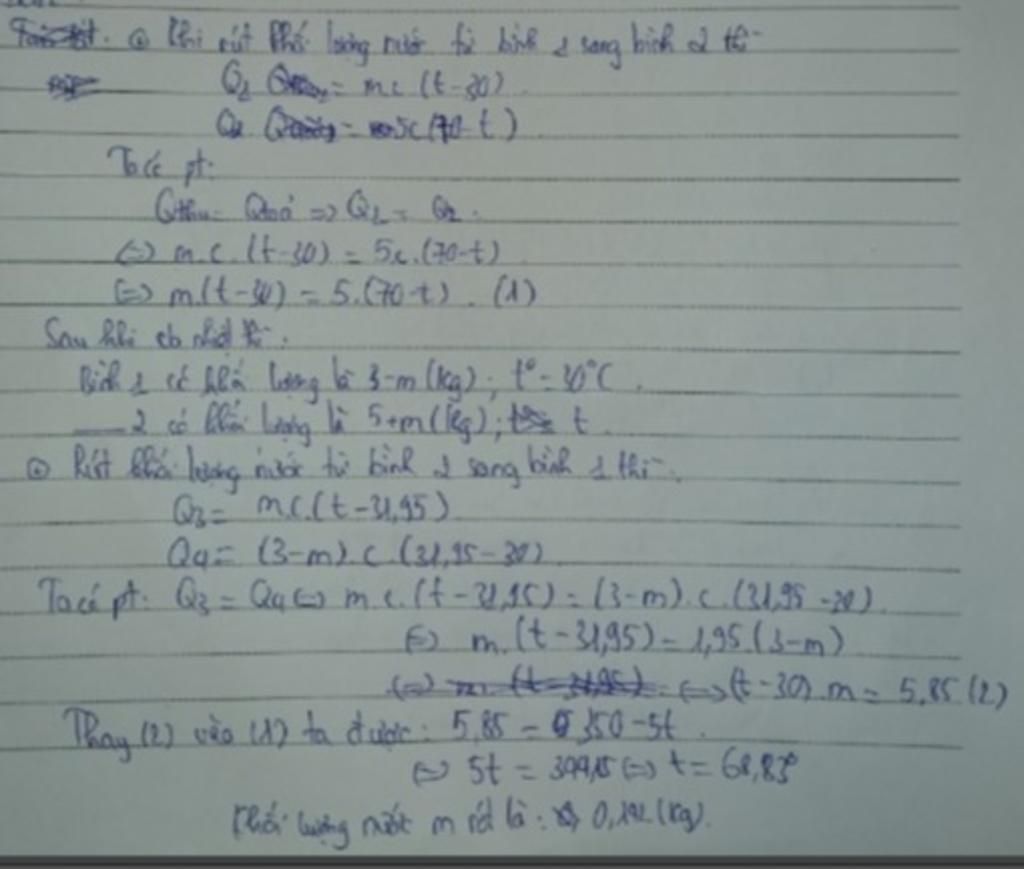 ① Khi rút khối lượng nước từ bình 1 sang bình 2 thì
Q1 = mc (t-30)
Q2 = 5c(70-t)
Ta có pt:
Qthu = Qtoả => Q1 = Q2.
(=) m.c.(t-30) = 5c.(70-t)
(=) m.(t-30) = 5.(70-t). (1)
Sau khi cb nhiệt thì:
Bình 1 có khối lượng là 3-m (kg); t° = 30°C.
2 có khối lượng là 5+m (kg); t
Rút khối lượng nước từ bình 2 sang bình 1 thì
Q3 = m.c.(t-31,95)
Q4 = (3-m).c.(31,95-30)
Ta có pt: Q3 = Q4 (=) m.c.(t-31,95) = (3-m).c.(31,95-30).
(=) m.(t-31,95) = 1,95.(3-m)
(=) (t-30).m = 5,85 (2)
Thay (2) vào (1) ta được: 5,85 = 350-5t.
(=) 5t = 344,15 (=) t = 68,83°
Khối lượng nước m rót là: (kg).